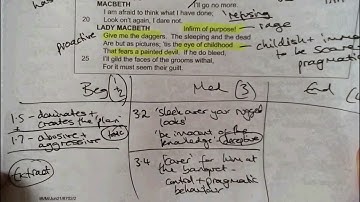 MACBETH
I'll go no more.
I am afraid to think what I have done;
refusing
20 Look on't again, I dare not.
rage
LADY MACBETH
Infirm of purpose!
proactive
Give me the daggers. The sleeping and the dead
Are but as pictures; 'tis the eye of childhood
childish + immature
That fears a painted devil. If he do bleed,
to be scared
25 I'll gild the faces of the grooms withal,
pragmatic
For it must seem their guilt.
Beg (1/2)
Mid (3)
End
1.5 - dominates +
creates the plan
1.7 - abusive +
aggressive
Extract
3.2 'sleek over your rugged
looks'
'be innocent of
the knowledge'
deceptive
3.4 'covers' for him at
the banquet -
control + pragmatic
behaviour
IB/M/Jun21/8702/2